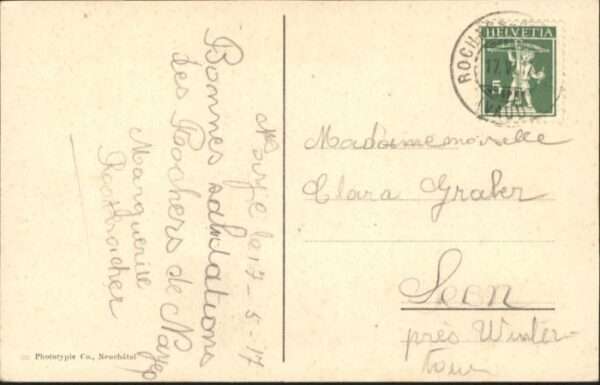 Bonnes salutations
des Rochers de Naye
Marguerite
le 17-5-17
HELVETIA
5
ROCH
17.V
Mademoiselle
Clara Graber
Seen
près Winter-
tour
Phototypie Co., Neuchâtel